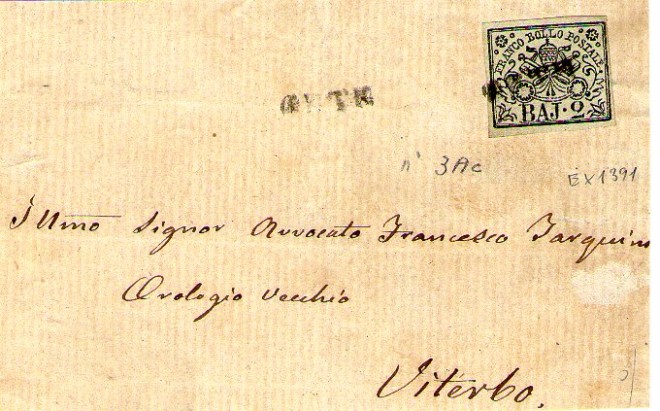 FRANCO BOLLO POSTALE
BAJ. 2
n° 3Ac
EX1391
Illmo Signor Avvocato Francesco Tarquini
Orologio Vecchio
Viterbo.